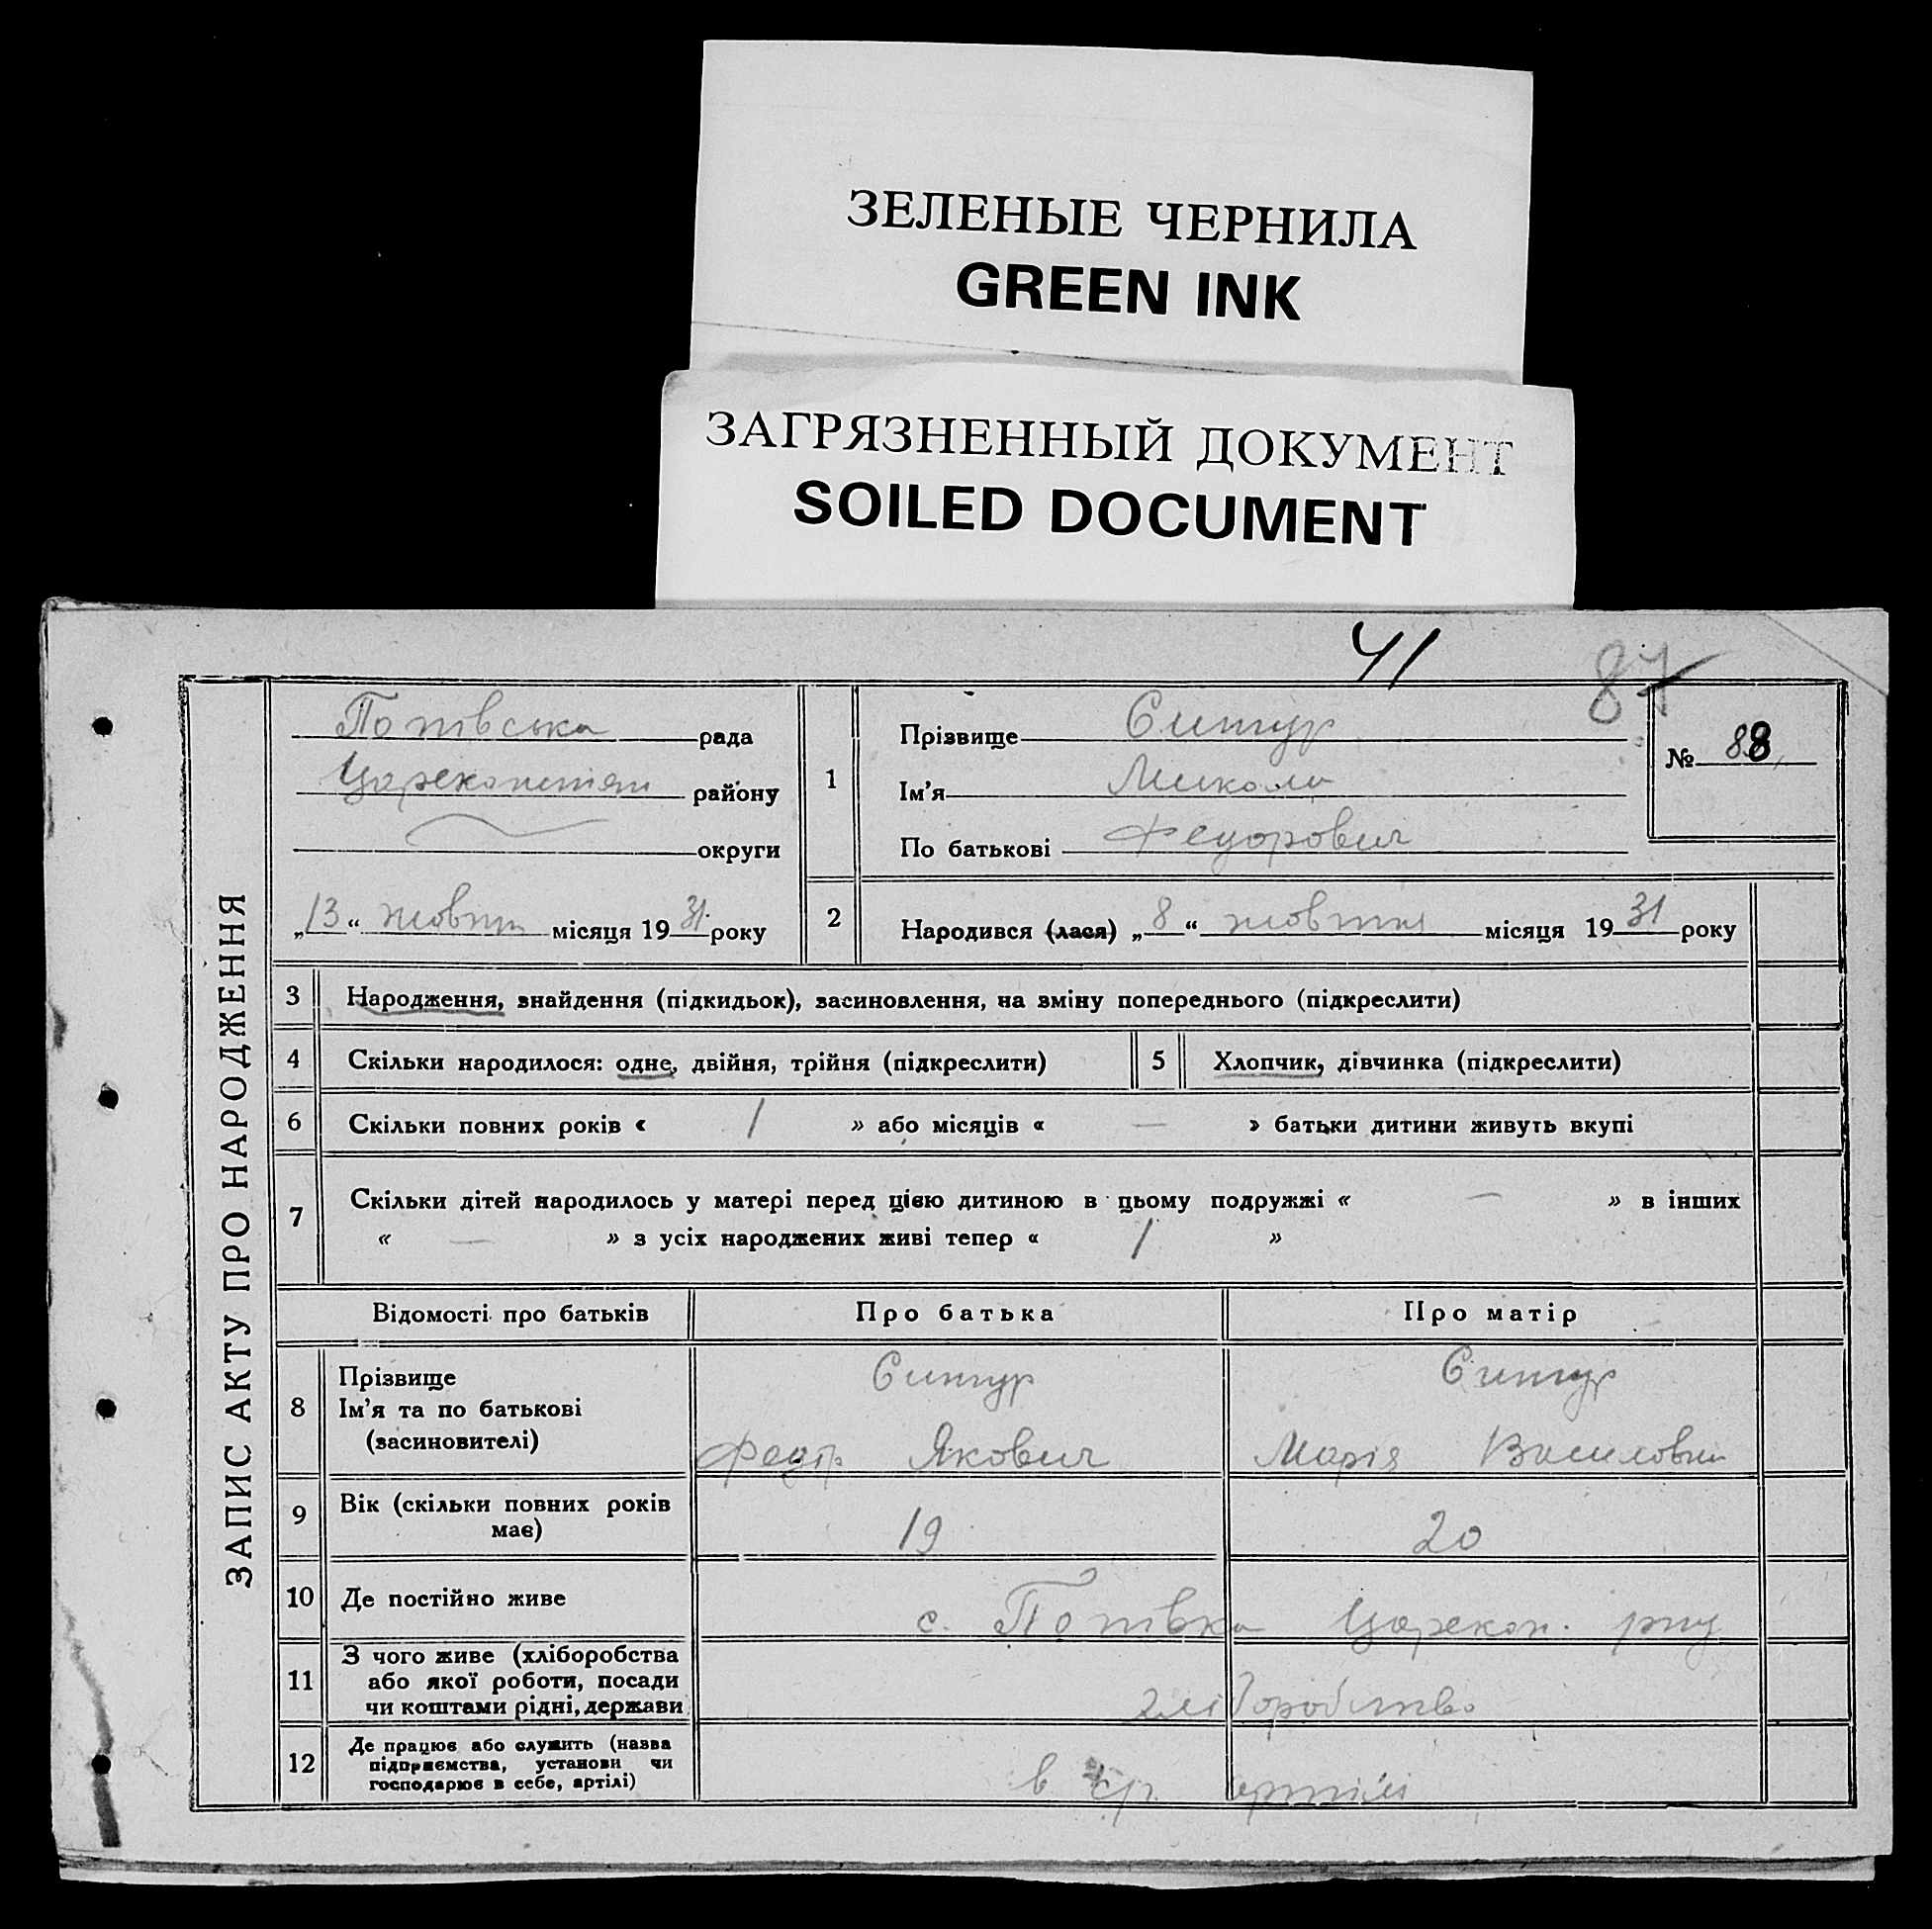 ЗЕЛЕНЫЕ ЧЕРНИЛА
GREEN INK
ЗАГРЯЗНЕННЫЙ ДОКУМЕНТ
SOILED DOCUMENT
41
87
ЗАПИС АКТУ ПРО НАРОДЖЕННЯ
Попівська рада
району
округи
„13“ жовтн місяця 1931 року
1
Прізвище
Ім'я Микола
По батькові Федорович
№ 88
2 Народився (лася) „8“ жовтня місяця 1931 року
3 Народження, знайдення (підкидьок), засиновлення, на зміну попереднього (підкреслити)
4 Скільки народилося: одне, двійня, трійня (підкреслити) 5 Хлопчик, дівчинка (підкреслити)
6 Скільки повних років « 1 » або місяців « — » батьки дитини живуть вкупі
7 Скільки дітей народилось у матері перед цією дитиною в цьому подружжі « — » в інших
« — » з усіх народжених живі тепер « 1 »
Відомості про батьків Про батька Про матір
8 Прізвище
Ім'я та по батькові
(засиновителі)
Федір Якович Марія
9 Вік (скільки повних років
має) 19 20
10 Де постійно живе с. Попівка Царекон. р-ну
11 З чого живе (хліборобства
або якої роботи, посади
чи коштами рідні, держави
хліборобство
12 Де працює або служить (назва
підприємства, установи чи
господарює в себе, артілі)
в с/г. артілі